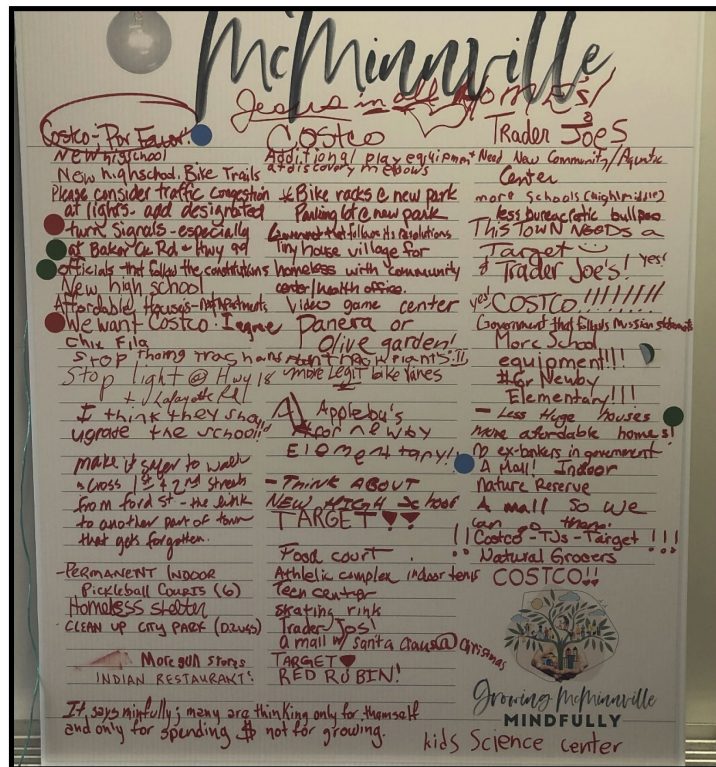 McMinnville
Jesus in all Homes!
Costco - Por Favor!
New highschool
New highschool. Bike Trails
Please consider traffic congestion
at lights - add designated
turn signals - especially
at Baker Ck Rd & Hwy 99
officials that follow the constitutions
New high school
Affordable Houses - not apartments
We want Costco. I agree
Chix Fila
Stop
Stop light @ Hwy 18
+ Lafayette Rd
I think they shoud
ugrade the school!!
make it safer to walk
across 1st & 2nd streets
from ford st - the link
to another part of town
that gets forgotten.
- PERMANENT INDOOR
Pickleball Courts (6)
Homeless shelter
CLEAN UP CITY PARK (DRUGS)
More gun stores
INDIAN RESTAURANT!
It says minfully; many are thinking only for themself
and only for spending $ not for growing.
COSTCO
Additional play equipment
at discovery meadows
Bike racks @ new park
Parking lot @ new park
Government that follows its resolutions
Tiny house village for
homeless with community
center/health office.
Video game center
Panera or
Olive garden!
more Legit bike lanes
Appleby's
for newby
Elementary!!
- THINK ABOUT
NEW HIGH School
TARGET
Food court
Athletic complex indoor tenis
Teen center
skating rink
Trader Jos'
a mall w/ santa claus @ christmas
TARGET
RED ROBIN!
Trader Joes
Need New Community/Aquatic
Center
more Schools (high/middle)
less bureacratic bullpoo
This TOWN NEEDS a
Target
& Trader Joe's! yes!
yes! COSTCO!!!!!!!
Government that follows mission statements
More School
equipment!!!
for Newby
Elementary!!!
- Less Huge houses
more afordable homes!
No ex-bankers in government
A Mall! Indoor
Nature Reserve
A mall So we
can go there.
!! Costco - TJs - Target !!!
Natural Grocers
COSTCO!!
Growing McMinnville
MINDFULLY
kids Science center